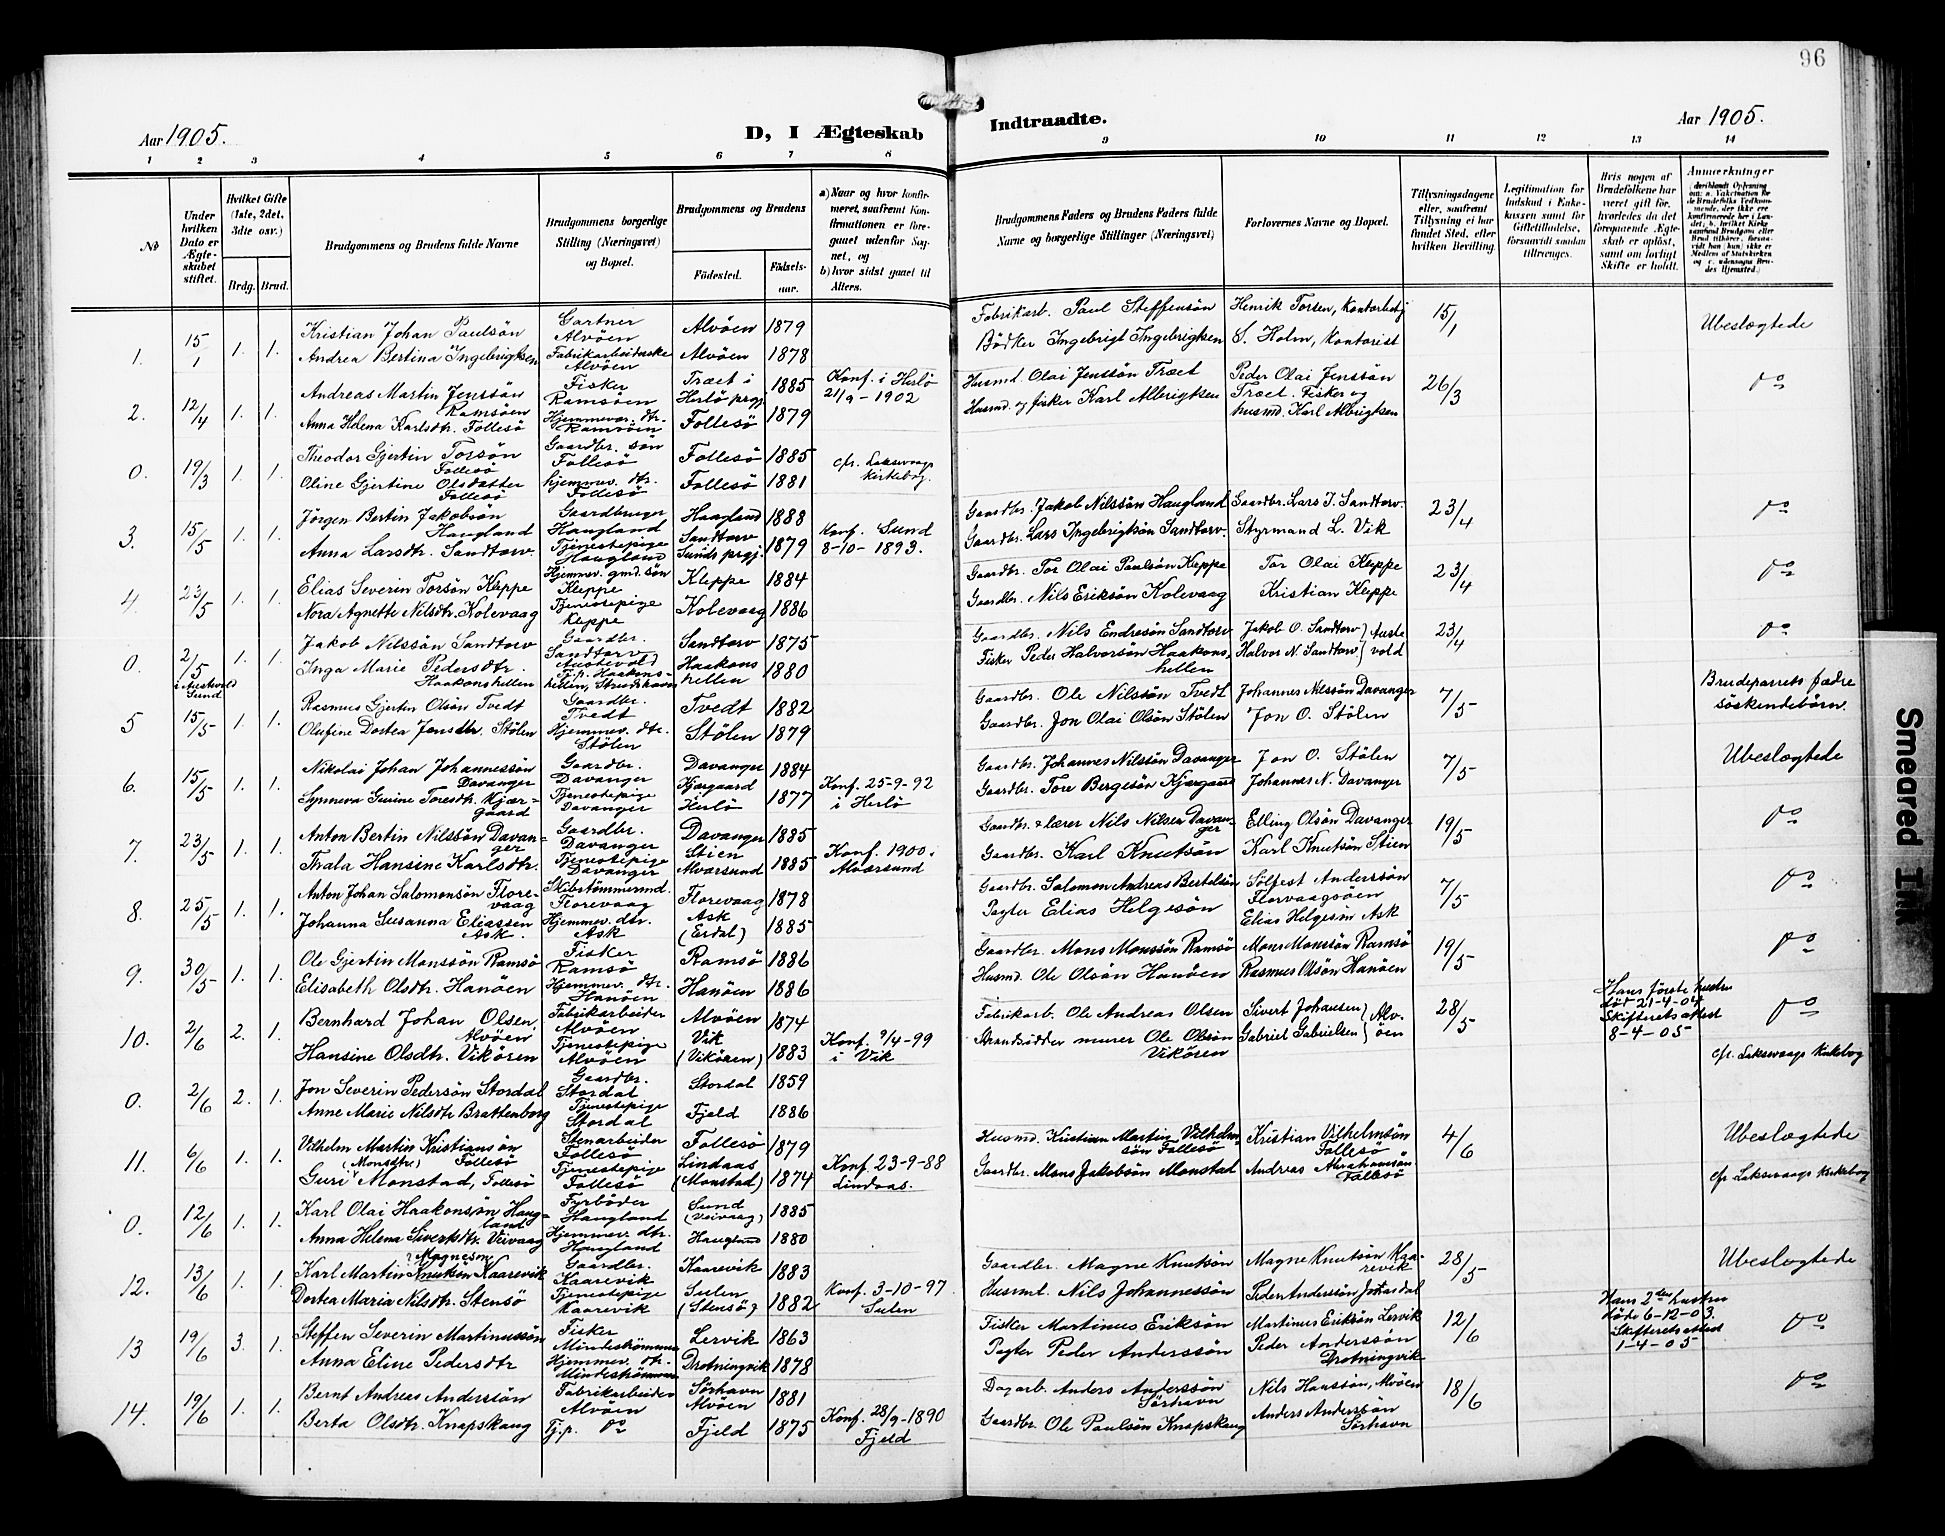 96
Aar 1905.
D, I Ægteskab Indtraadte.
Aar 1905.
1 2 3 4 5 6 7 8 9 10 11 12 13 14
No
Under hvilken Dato er Ægteskabet stiftet.
Hvilket Gifte (1ste, 2det, 3dte osv.)
Brdg. Brud.
Brudgommens og Brudens fulde Navne
Brudgommens borgerlige Stilling (Næringsvei) og Bopæl.
Brudgommens og Brudens
Födested.
Födselsaar.
a) Naar og hvor konfirmeret, saafremt Konfirmationen er foregaaet udenfor Sognet, og
b) hvor sidst gaaet til Alters.
Brudgommens Faders og Brudens Faders fulde Navne og borgerlige Stillinger (Næringsvei)
Forlovernes Navne og Bopæl.
Tillysningsdagene eller, saafremt Tillysning ei har fundet Sted, efter hvilken Bevilling.
Legitimation for Indskud i Enkekassen samt for Giftetilladelse, forsaavidt saadan tiltrænges.
Hvis nogen af Brudefolkene har været gift før, hvorledes da det foregaaende Ægteskab er oplöst, samt om lovligt Skifte er holdt.
Anmerkninger
1. 15/1 1. 1. Kristian Johan Paulsön Gartner Alvöen Alvöen 1879 Fabrikarb. Paul Steffensön Henrik Torsen, Kontorbetj 15/1 Ubeslægtede
Andrea Bertina Ingebrigtsen Fabrikarbeiderske Alvöen Alvöen 1878 Bödker Ingebrigt Ingebrigtsen S. Holm, Kontorist
2. 12/4 1. 1. Andreas Martin Jenssön Ramsöen Fisker Ramsöen Træet i Herlö prgj. 1885 Konf. i Herlö 21/9-1902 Husmd. Olai Jenssön Træet Peder Olai Jenssön Træet. Fisker og 26/3 do
Anna Helena Karlsdtr. Follesö Hjemmevær. dtr. Ramsöen Follesö 1879 Husmd. og fisker Karl Albrigtsen husmd. Karl Albrigtsen
0. 19/3 1. 1. Theodor Gjertin Torsön Follesö Gaardbr. sön Follesö Follesö 1885 cfr. Laksevaags Kirkebog.
Oline Gjertine Olsdatter Follesö hjemmev. dtr. Follesö Follesö 1881
3. 15/5 1. 1. Jörgen Bertin Jakobsön Haugland Gaardbruger Haugland Haugland 1888 Konf. Sund 8-10-1893. Gaardbr. Jakob Nilssön Haugland Gaardbr. Lars I. Sandtorv. 23/4 do
Anna Larsdtr. Sandtorv. Tjenestepige Haugland Sandtorv Sunds prgj. 1879 Gaardbr. Lars Ingebrigtsön Sandtorv. Styrmand L. Vik
4. 23/5 1. 1. Elias Severin Torsön Kleppe Hjemmev. gmd. sön Kleppe Kleppe 1884 Gaardbr. Tor Olai Paulsön Kleppe Tor Olai Kleppe 23/4 do
Nora Agnette Nilsdtr. Kolevaag Tjenestepige Kleppe Kolevaag 1886 Gaardbr. Nils Eriksön Kolevaag Kristian Kleppe
0. 2/5 i Austevold Sund 1. 1. Jakob Nilssön Sandtorv Gaardbr. Sandtorv Austevold Sandtorv 1875 Gaardbr. Nils Endresön Sandtorv Jakob O. Sandtorv Austevold 23/4 do
Inga Marie Pedersdtr. Haakonshellen Tj.p. Haakonshellen, Strudshavn Haakonshellen 1880 Fisker Peder Halvorsön Haakonshellen Halvor N. Sandtorv
5 15/5 1. 1. Rasmus Gjertin Olsön Tvedt Gaardbr. Tvedt Tvedt 1882 Gaardbr. Ole Nilssön Tvedt Johannes Nilssön Davanger 7/5 Brudeparrets fædre söskendebörn.
Olufine Dortea Jonsdtr. Stölen Hjemmev. dtr. Stölen Stölen 1879 Gaardbr. Jon Olai Olsön Stölen Jon O. Stölen
6. 15/5 1. 1. Nikolai Johan Johannessön Davanger Gaardbr. Davanger Davanger 1884 Konf. 25-9-92 i Herlö Gaardbr. Johannes Nilssön Davanger Jon O. Stölen 7/5 Ubeslægtede
Synneva Gurine Toresdtr. Kjærgaard Tjenestepige Davanger Kjærgaard Herlö 1877 Gaardbr. Tore Bergesön Kjærgaard Johannes N. Davanger
7. 23/5 1. 1. Anton Bertin Nilssön Davanger Gaardbr. Davanger Davanger 1885 Konf. 1900 i Alversund Gaardbr. & lærer Nils Nilsen Davanger Elling Olsön Davanger 19/5 do
Thala Hansine Karlsdtr. Tjenestepige Davanger Stien Alversund 1885 Gaardbr. Karl Knutsön Karl Knutsön Stien
8. 25/5 1. 1. Anton Johan Salomonsön Florevaag Skibstömmermd. Florevaag Florevaag 1878 Gaardbr. Salomon Andreas Bertelsön Sölfest Anderssön Florvaagsöen 7/5 do
Johanna Susanna Eliassen Ask. Hjemmev. dtr. Ask Ask (Erdal) 1885 Pagter Elias Helgesön Elias Helgesön Ask
9. 30/5 1. 1. Ole Gjertin Monssön Ramsö Fisker Ramsö Ramsö 1886 Gaardbr. Mons Monssön Ramsö Mons Monssön Ramsö 19/5 do
Elisabeth Olsdtr. Hanöen Hjemmev. dtr. Hanöen Hanöen 1886 Husmd. Ole Olsön Hanöen Rasmus Olsön Hanöen
10. 2/6 2. 1. Bernhard Johan Olsen, Alvöen Fabrikarbeider Alvöen Alvöen 1874 Konf. 9/4-99 i Vik Fabrikarb. Ole Andreas Olsen Sivert Johansen Alvöen 28/5 Hans förste hustru död 21-4-04 Skifterets attest 8-4-05 do
Hansine Olsdtr. Vikören Tjenestepige Alvöen Vik (Vikören) 1883 Strandsidder murer Ole Olsön Vikören Gabriel Gabrielsen
0. 2/6 2. 1. Jon Severin Pedersön Stordal Gaardbr. Stordal Stordal 1859 cfr. Laksevaags Kirkebog
Anne Marie Nilsdtr Brattenborg Tjenestepige Stordal Fjeld 1886
11. 6/6 1. 1. Vilhelm Martin Kristiansön Follesö Stenarbeider Follesö Follesö 1879 Konf. 23-9-88 Lindaas. Husmd. Kristian Martin Vilhelmsön Follesö Kristian Vilhelmsön Follesö 4/6 Ubeslægtede
Guri (Monsdtr.) Monstad, Follesö Tjenestepige Follesö Lindaas (Monstad) 1874 Gaardbr. Mons Jakobsön Monstad Andreas Abrahamsön Follesö
0. 12/6 1. 1. Karl Olai Haakonsön Haugland Fyrböder Haugland Sund (Veivaag) 1885 cfr Laksevaags Kirkebog
Anna Helena Sivertsdtr. Veivaag Hjemmev. dtr. Haugland Haugland 1880
12. 13/6 1. 1. Karl Martin Knutsön Magneson Kaarevik Gaardbr. Kaarevik Kaarevik 1883 Konf. 3-10-97 Sulen Gaardbr. Magne Knutsön Magne Knutsön Kaarevik 28/5 Ubeslægtede
Dortea Maria Nilsdtr. Stensö Tjenestepige Kaarevik Sulen (Stensö) 1882 Husmd. Nils Johannessön Peder Anderssön
13 19/6 3. 1. Steffen Severin Martinussön Fisker Lervik 1863 Fisker Martinus Eriksön Martinus Eriksön Lervik 12/6 Hans 2den hustru döde 6-12-03. Skifterets attest 1-4-05 do
Anna Eline Pedersdtr Hjemmev. dtr. Drotningvik 1878 Pagter Peder Anderssön Peder Anderssön Drotningvik
14. 19/6 1. 1. Bernt Andreas Anderssön Fabrikarbeider Alvöen Sörhavn Alvöen 1881 Konf. 28/9-1890 Fjeld Dagarb. Anders Anderssön Sörhavn Nils Hanssön, Alvöen 18/6 do
Berta Olsdtr. Knapskaug Tj.p. do Fjeld 1875 Gaardbr. Ole Paulsön Knapskaug Anders Anderssön Sörhavn
Smeared Ink